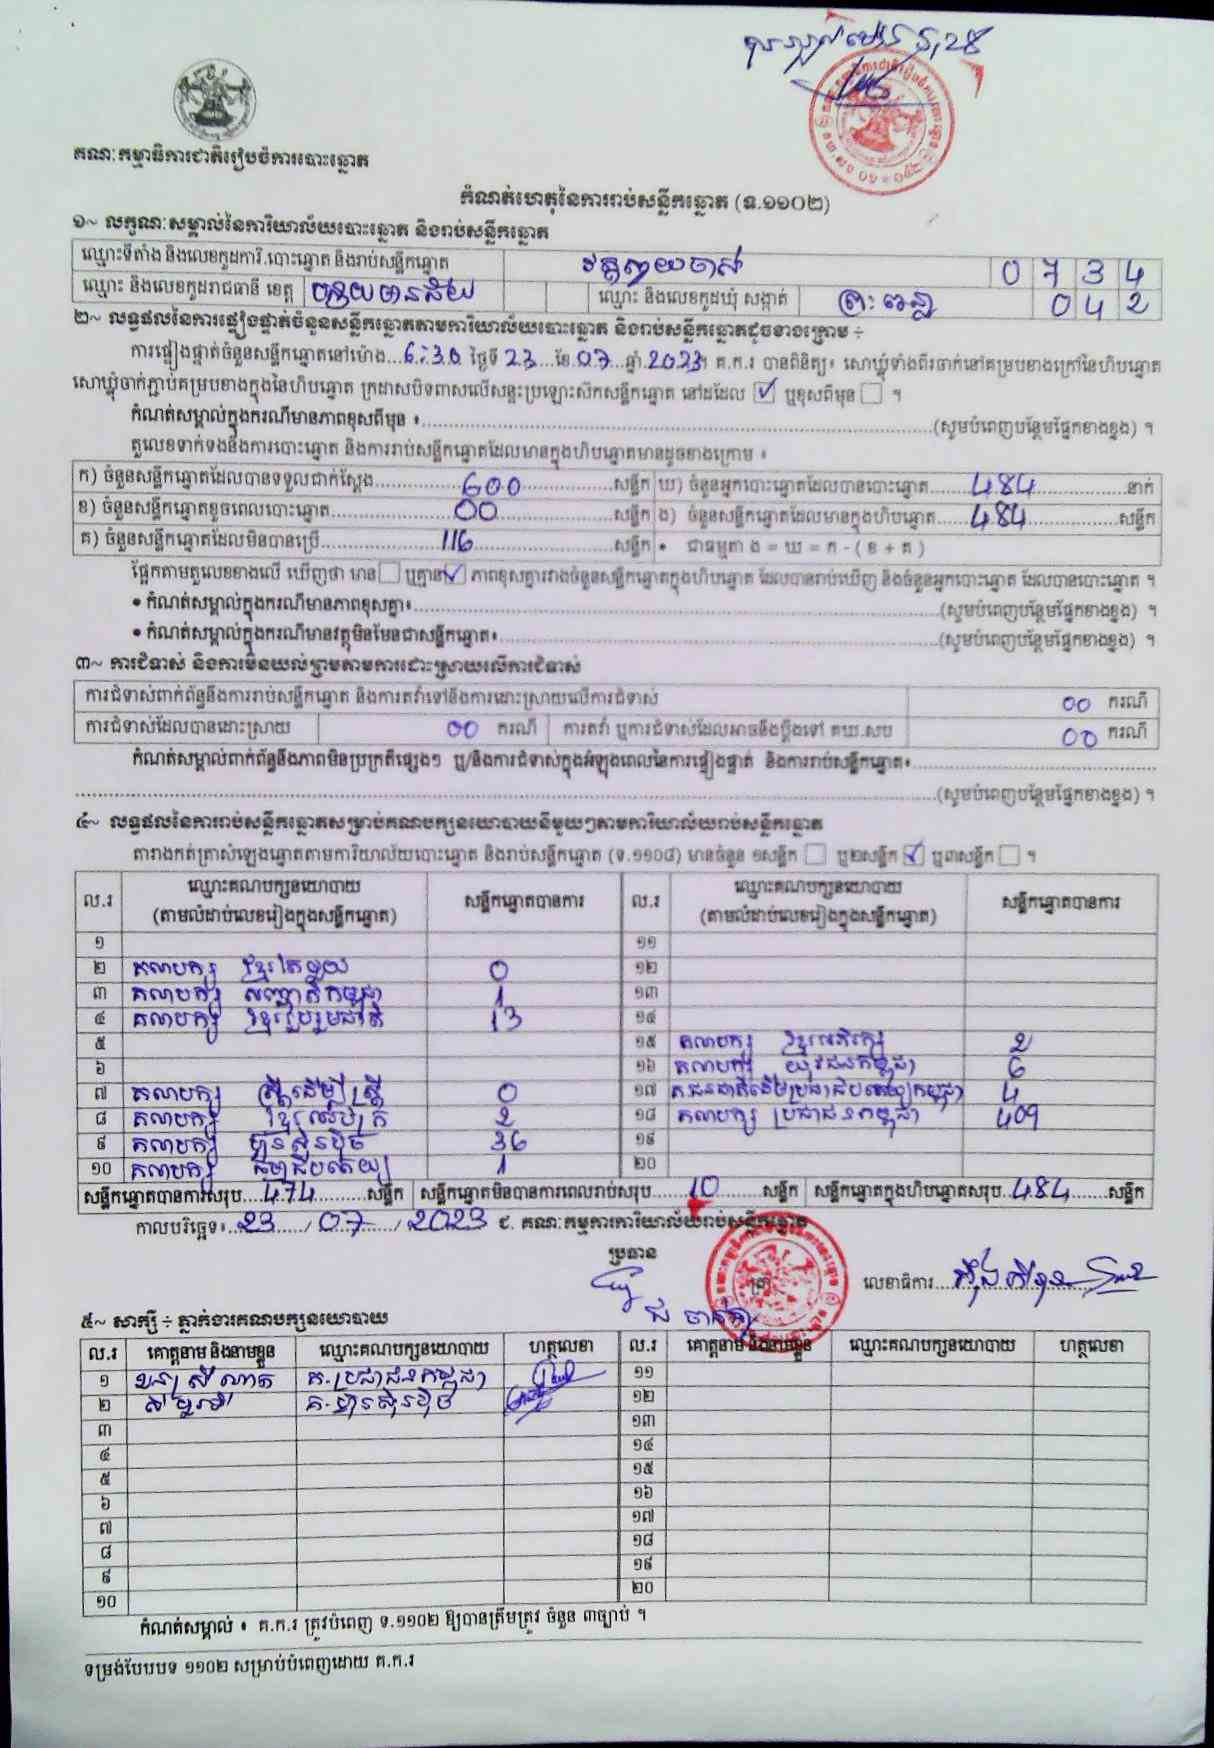 គណៈកម្មាធិការជាតិរៀបចំការបោះឆ្នោត
កំណត់ហេតុនៃការរាប់សន្លឹកឆ្នោត (ទ.១១០២)
១~ លក្ខណៈសម្គាល់នៃការិយាល័យបោះឆ្នោត និងរាប់សន្លឹកឆ្នោត
ឈ្មោះទីតាំង និងលេខកូដការិ.បោះឆ្នោត និងរាប់សន្លឹកឆ្នោត វត្ត 0 7 3 4
ឈ្មោះ និងលេខកូដរាជធានី ខេត្ត បន្ទាយមានជ័យ ឈ្មោះ និងលេខកូដឃុំ សង្កាត់ 0 4 2
២~ លទ្ធផលនៃការផ្ទៀងផ្ទាត់ចំនួនសន្លឹកឆ្នោតតាមការិយាល័យបោះឆ្នោត និងរាប់សន្លឹកឆ្នោតដូចខាងក្រោម ÷
ការផ្ទៀងផ្ទាត់ចំនួនសន្លឹកឆ្នោតនៅម៉ោង...6:30 ថ្ងៃទី 23...ខែ.07...ឆ្នាំ.2023។ គ.ក.រ បានពិនិត្យ៖ សោឃ្នុំទាំងពីរចាក់នៅគម្របខាងក្រៅនៃហិបឆ្នោត
សោឃ្នុំចាក់ភ្ជាប់គម្របខាងក្នុងនៃហិបឆ្នោត ក្រដាសបិទពាសលើសន្ទះប្រឡោះស៊កសន្លឹកឆ្នោត នៅដដែល ☑ ឬខុសពីមុន ☐ ។
កំណត់សម្គាល់ក្នុងករណីមានភាពខុសពីមុន ៖...(សូមបំពេញបន្ថែមផ្នែកខាងខ្នង) ។
តួលេខទាក់ទងនឹងការបោះឆ្នោត និងការរាប់សន្លឹកឆ្នោតដែលមានក្នុងហិបឆ្នោតមានដូចខាងក្រោម ៖
ក) ចំនួនសន្លឹកឆ្នោតដែលបានទទួលជាក់ស្តែង...600...សន្លឹក ឃ) ចំនួនអ្នកបោះឆ្នោតដែលបានបោះឆ្នោត...484...នាក់
ខ) ចំនួនសន្លឹកឆ្នោតខូចពេលបោះឆ្នោត...00...សន្លឹក ង) ចំនួនសន្លឹកឆ្នោតដែលមានក្នុងហិបឆ្នោត...484...សន្លឹក
គ) ចំនួនសន្លឹកឆ្នោតដែលមិនបានប្រើ...116...សន្លឹក • ជាធម្មតា ង = ឃ = ក - ( ខ + គ )
ផ្អែកតាមតួលេខខាងលើ ឃើញថា មាន☐ ឬគ្មាន☑ ភាពខុសគ្នារវាងចំនួនសន្លឹកឆ្នោតក្នុងហិបឆ្នោត ដែលបានរាប់ឃើញ និងចំនួនអ្នកបោះឆ្នោត ដែលបានបោះឆ្នោត ។
• កំណត់សម្គាល់ក្នុងករណីមានភាពខុសគ្នា៖...(សូមបំពេញបន្ថែមផ្នែកខាងខ្នង) ។
• កំណត់សម្គាល់ក្នុងករណីមានវត្ថុមិនមែនជាសន្លឹកឆ្នោត៖...(សូមបំពេញបន្ថែមផ្នែកខាងខ្នង) ។
៣~ ការជំទាស់ និងការមិនយល់ព្រមតាមការដោះស្រាយលើការជំទាស់
ការជំទាស់ពាក់ព័ន្ធនឹងការរាប់សន្លឹកឆ្នោត និងការតវ៉ាទៅនឹងការដោះស្រាយលើការជំទាស់ 00 ករណី
ការជំទាស់ដែលបានដោះស្រាយ 00 ករណី ការតវ៉ា ឬការជំទាស់ដែលអាចនឹងប្តឹងទៅ គឃ.សប 00 ករណី
កំណត់សម្គាល់ពាក់ព័ន្ធនឹងភាពមិនប្រក្រតីផ្សេងៗ ឬ/និងការជំទាស់ក្នុងអំឡុងពេលនៃការផ្ទៀងផ្ទាត់ និងការរាប់សន្លឹកឆ្នោត៖...
...(សូមបំពេញបន្ថែមផ្នែកខាងខ្នង) ។
៤~ លទ្ធផលនៃការរាប់សន្លឹកឆ្នោតសម្រាប់គណបក្សនយោបាយនីមួយៗតាមការិយាល័យរាប់សន្លឹកឆ្នោត
តារាងកត់ត្រាសំឡេងឆ្នោតតាមការិយាល័យបោះឆ្នោត និងរាប់សន្លឹកឆ្នោត (ទ.១១០៨) មានចំនួន ១សន្លឹក ☐ ឬ២សន្លឹក ☑ ឬ៣សន្លឹក ☐ ។
ល.រ ឈ្មោះគណបក្សនយោបាយ (តាមលំដាប់លេខរៀងក្នុងសន្លឹកឆ្នោត) សន្លឹកឆ្នោតបានការ ល.រ ឈ្មោះគណបក្សនយោបាយ (តាមលំដាប់លេខរៀងក្នុងសន្លឹកឆ្នោត) សន្លឹកឆ្នោតបានការ
១ ១១
២ គណបក្ស ខ្មែរតែមួយ 0 ១២
៣ គណបក្ស សញ្ជាតិកម្ពុជា 1 ១៣
៤ គណបក្ស ខ្មែររួបរួមជាតិ 13 ១៤
៥ ១៥ គណបក្ស ខ្មែរអភិរក្ស 2
៦ ១៦ គណបក្ស យុវជនកម្ពុជា 6
៧ គណបក្ស ស្ត្រីដើម្បីស្ត្រី 0 ១៧ គ.ជនជាតិដើមប្រជាធិបតេយ្យកម្ពុជា 4
៨ គណបក្ស ខ្មែរឈប់ក្រ 2 ១៨ គណបក្ស ប្រជាជនកម្ពុជា 409
៩ គណបក្ស ហ៊្វុនស៊ិនប៉ិច 36 ១៩
១០ គណបក្ស ធម្មាធិបតេយ្យ 1 ២០
សន្លឹកឆ្នោតបានការសរុប...474...សន្លឹក សន្លឹកឆ្នោតមិនបានការពេលរាប់សរុប...10...សន្លឹក សន្លឹកឆ្នោតក្នុងហិបឆ្នោតសរុប..484...សន្លឹក
កាលបរិច្ឆេទ៖...23.../07.../2023 ៩. គណៈកម្មការការិយាល័យរាប់សន្លឹកឆ្នោត
ប្រធាន
លេខាធិការ...
៥~ សាក្សី ÷ ភ្នាក់ងារគណបក្សនយោបាយ
ល.រ គោត្តនាម និងនាមខ្លួន ឈ្មោះគណបក្សនយោបាយ ហត្ថលេខា ល.រ គោត្តនាម និងនាមខ្លួន ឈ្មោះគណបក្សនយោបាយ ហត្ថលេខា
១ គ.ប្រជាជនកម្ពុជា ១១
២ គ.ហ៊្វុនស៊ិនប៉ិច ១២
៣ ១៣
៤ ១៤
៥ ១៥
៦ ១៦
៧ ១៧
៨ ១៨
៩ ១៩
១០ ២០
កំណត់សម្គាល់ ៖ គ.ក.រ ត្រូវបំពេញ ទ.១១០២ ឱ្យបានត្រឹមត្រូវ ចំនួន ៣ច្បាប់ ។
ទម្រង់បែបបទ ១១០២ សម្រាប់បំពេញដោយ គ.ក.រ